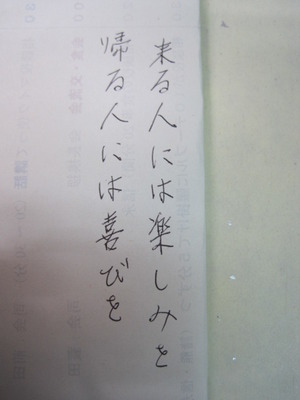 来る人には楽しみを
帰る人には喜びを